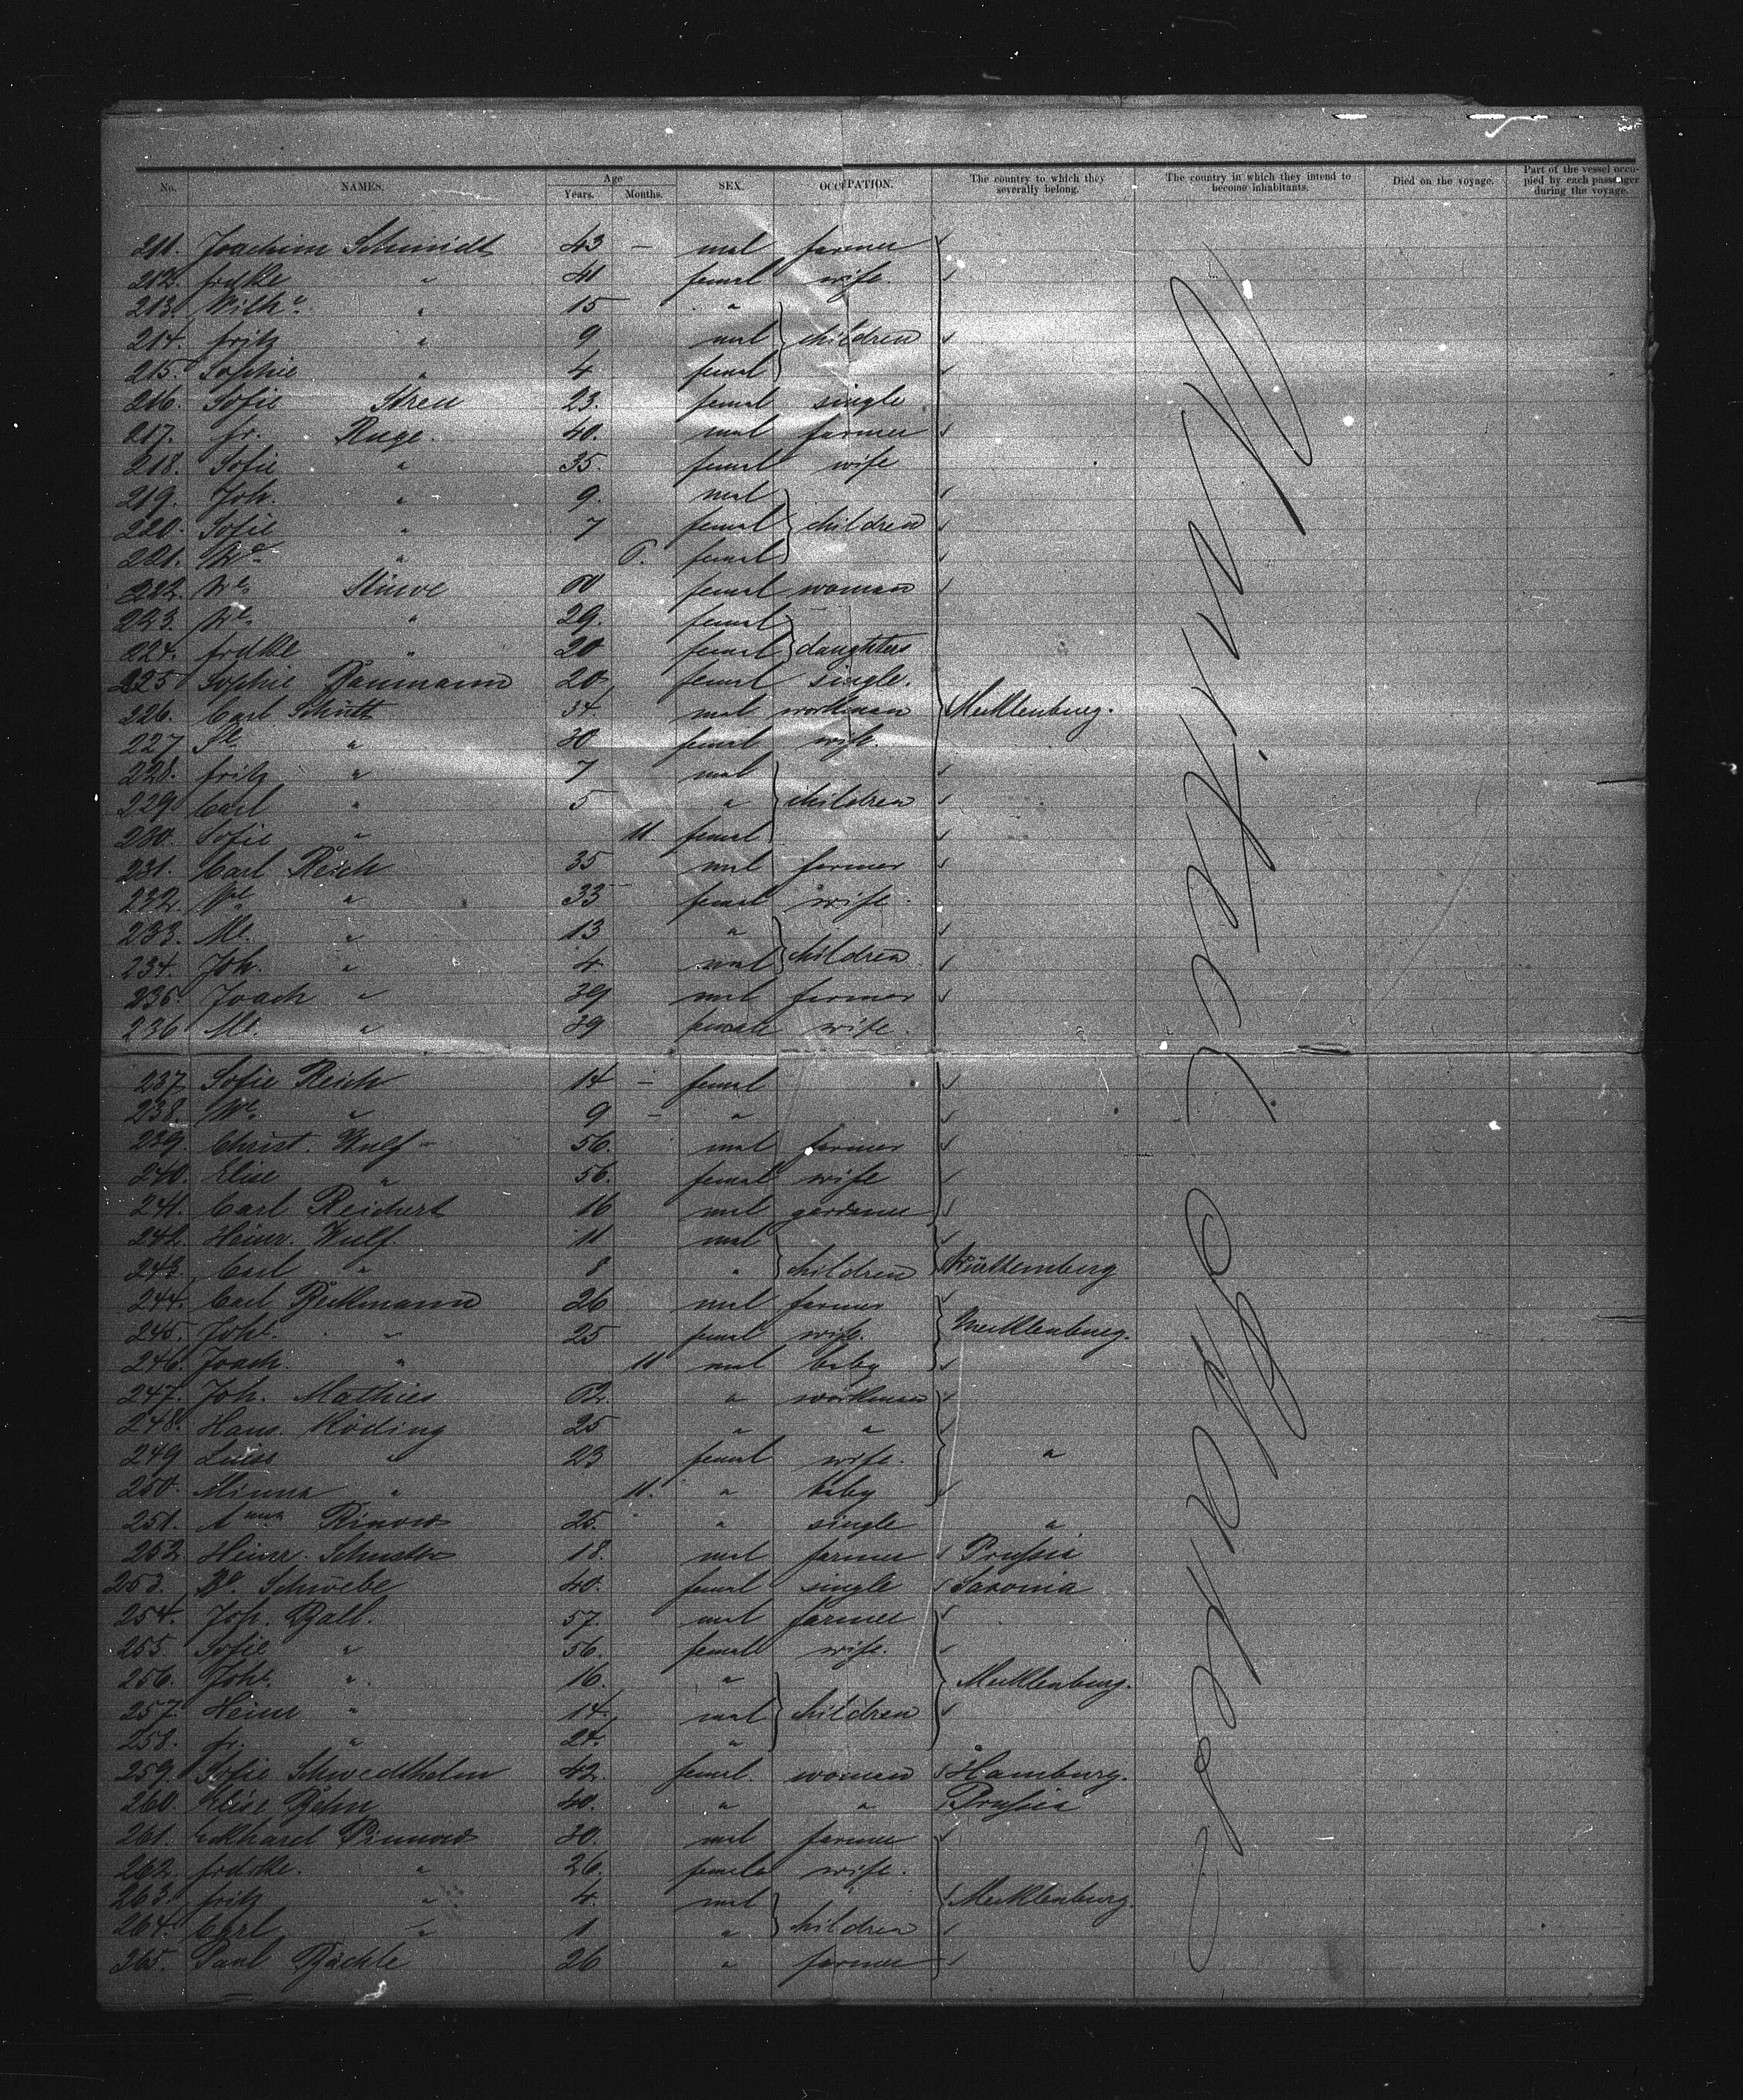 No. NAMES. Age Years. Months. SEX. OCCUPATION. The country to which they severally belong. The country in which they intend to become inhabitants. Died on the voyage. Part of the vessel occupied by each passenger during the voyage.
211. Joachim Schmidt 43 — mal farmer
212. frdke " 41 femal wife.
213. Wilhe. " 15 "
214. fritz " 9 mal children
215. Sophie " 4 femal
216. Sofie 23. femal single
217. fr. Ruge. 40. mal farmer
218. Sofie " 35. femal wife
219. Joh. " 9. mal
220. Sofie " 7 femal children
221. " 6. femal
222. We. Stüwe 60 femal woman
223. We. " 29. femal
224. frdke " 20 femal daughters
225 Sophie Baumann 20 femal single.
226. Carl Schütt 34. mal workman Mecklenburg.
227 " 30 femal wife.
228. fritz " 7 mal
229 Carl " 5 " children
230. Sofie " 11. femal
231. Carl Reich 35 mal farmer
232. We " 33 femal wife.
233. Me. " 13 "
234. Joh. " 4 mal children
235. Joach " 39 mal farmer
236 Me. " 39 female wife.
237 Sofie Reich 14 — femal
238. We. " 9 — "
239. Christ. Wulf 56. mal farmer
240. Elise " 56. femal wife
241. Carl Reichert 16 mal gardener
242. Heinr. Wulf. 11 mal
243. Carl " 8 " children Württemberg
244. Carl Beckmann 26 mal farmer
245. Johe. " 25 femal wife. Mecklenburg.
246. Joach. " 11 mal baby
247. Joh. Mathies 62. " workman
248. Hans. Röding 25 " "
249 Luise " 23 femal wife. "
250. Minna " 11. " baby
251. Anna 25. " single "
252 Heinr. Schuster 18. mal farmer Prussia
253. Schwebe 40. femal single Saxonia
254. Joh. Ball. 57. mal farmer
255. Sofie " 56. femall wife.
256. Johe. " 16. " Mecklenburg.
257. Heinr " 14. mal children
258. fr. " 24. "
259. Sofie Schwedthelm 42. femal. woman Hamburg.
260. Elise Behn 40. " " Prussia
261. Eckhard Pinnow 30. mal farmer
262 frdcke. " 26. female wife.
263. fritz " 4. mal Mecklenburg.
264. Carl " 1 " children
265. Paul Bächle 26 " farmer